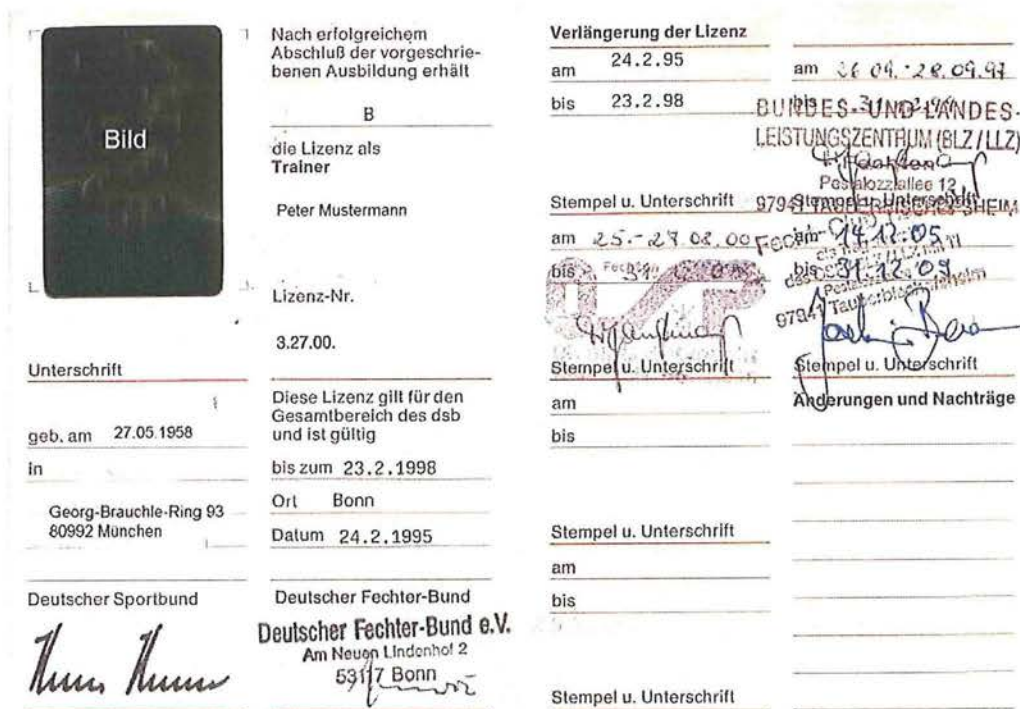 Bild
Unterschrift
geb. am 27.05.1958
in
Georg-Brauchle-Ring 93
80992 München
Deutscher Sportbund
Nach erfolgreichem
Abschluß der vorgeschrie-
benen Ausbildung erhält
B
die Lizenz als
Trainer
Peter Mustermann
Lizenz-Nr.
3.27.00.
Diese Lizenz gilt für den
Gesamtbereich des dsb
und ist gültig
bis zum 23.2.1998
Ort Bonn
Datum 24.2.1995
Deutscher Fechter-Bund
Deutscher Fechter-Bund e.V.
Am Neuen Lindenhof 2
53117 Bonn
Verlängerung der Lizenz
am 24.2.95
bis 23.2.98
Stempel u. Unterschrift
am 25.-27.02.00
bis
Fechten
Stempel u. Unterschrift
am
bis
Stempel u. Unterschrift
am
bis
Stempel u. Unterschrift
am 26.09.-28.09.97
bis
BUNDES- UND LANDES-
LEISTUNGSZENTRUM (BLZ/LLZ)
Pestalozziallee 12
97941 TAUBERBISCHOFSHEIM
Stempel u. Unterschrift
am 14.12.05
bis 31.12.09
97941 Tauberbischofsheim
Stempel u. Unterschrift
Änderungen und Nachträge